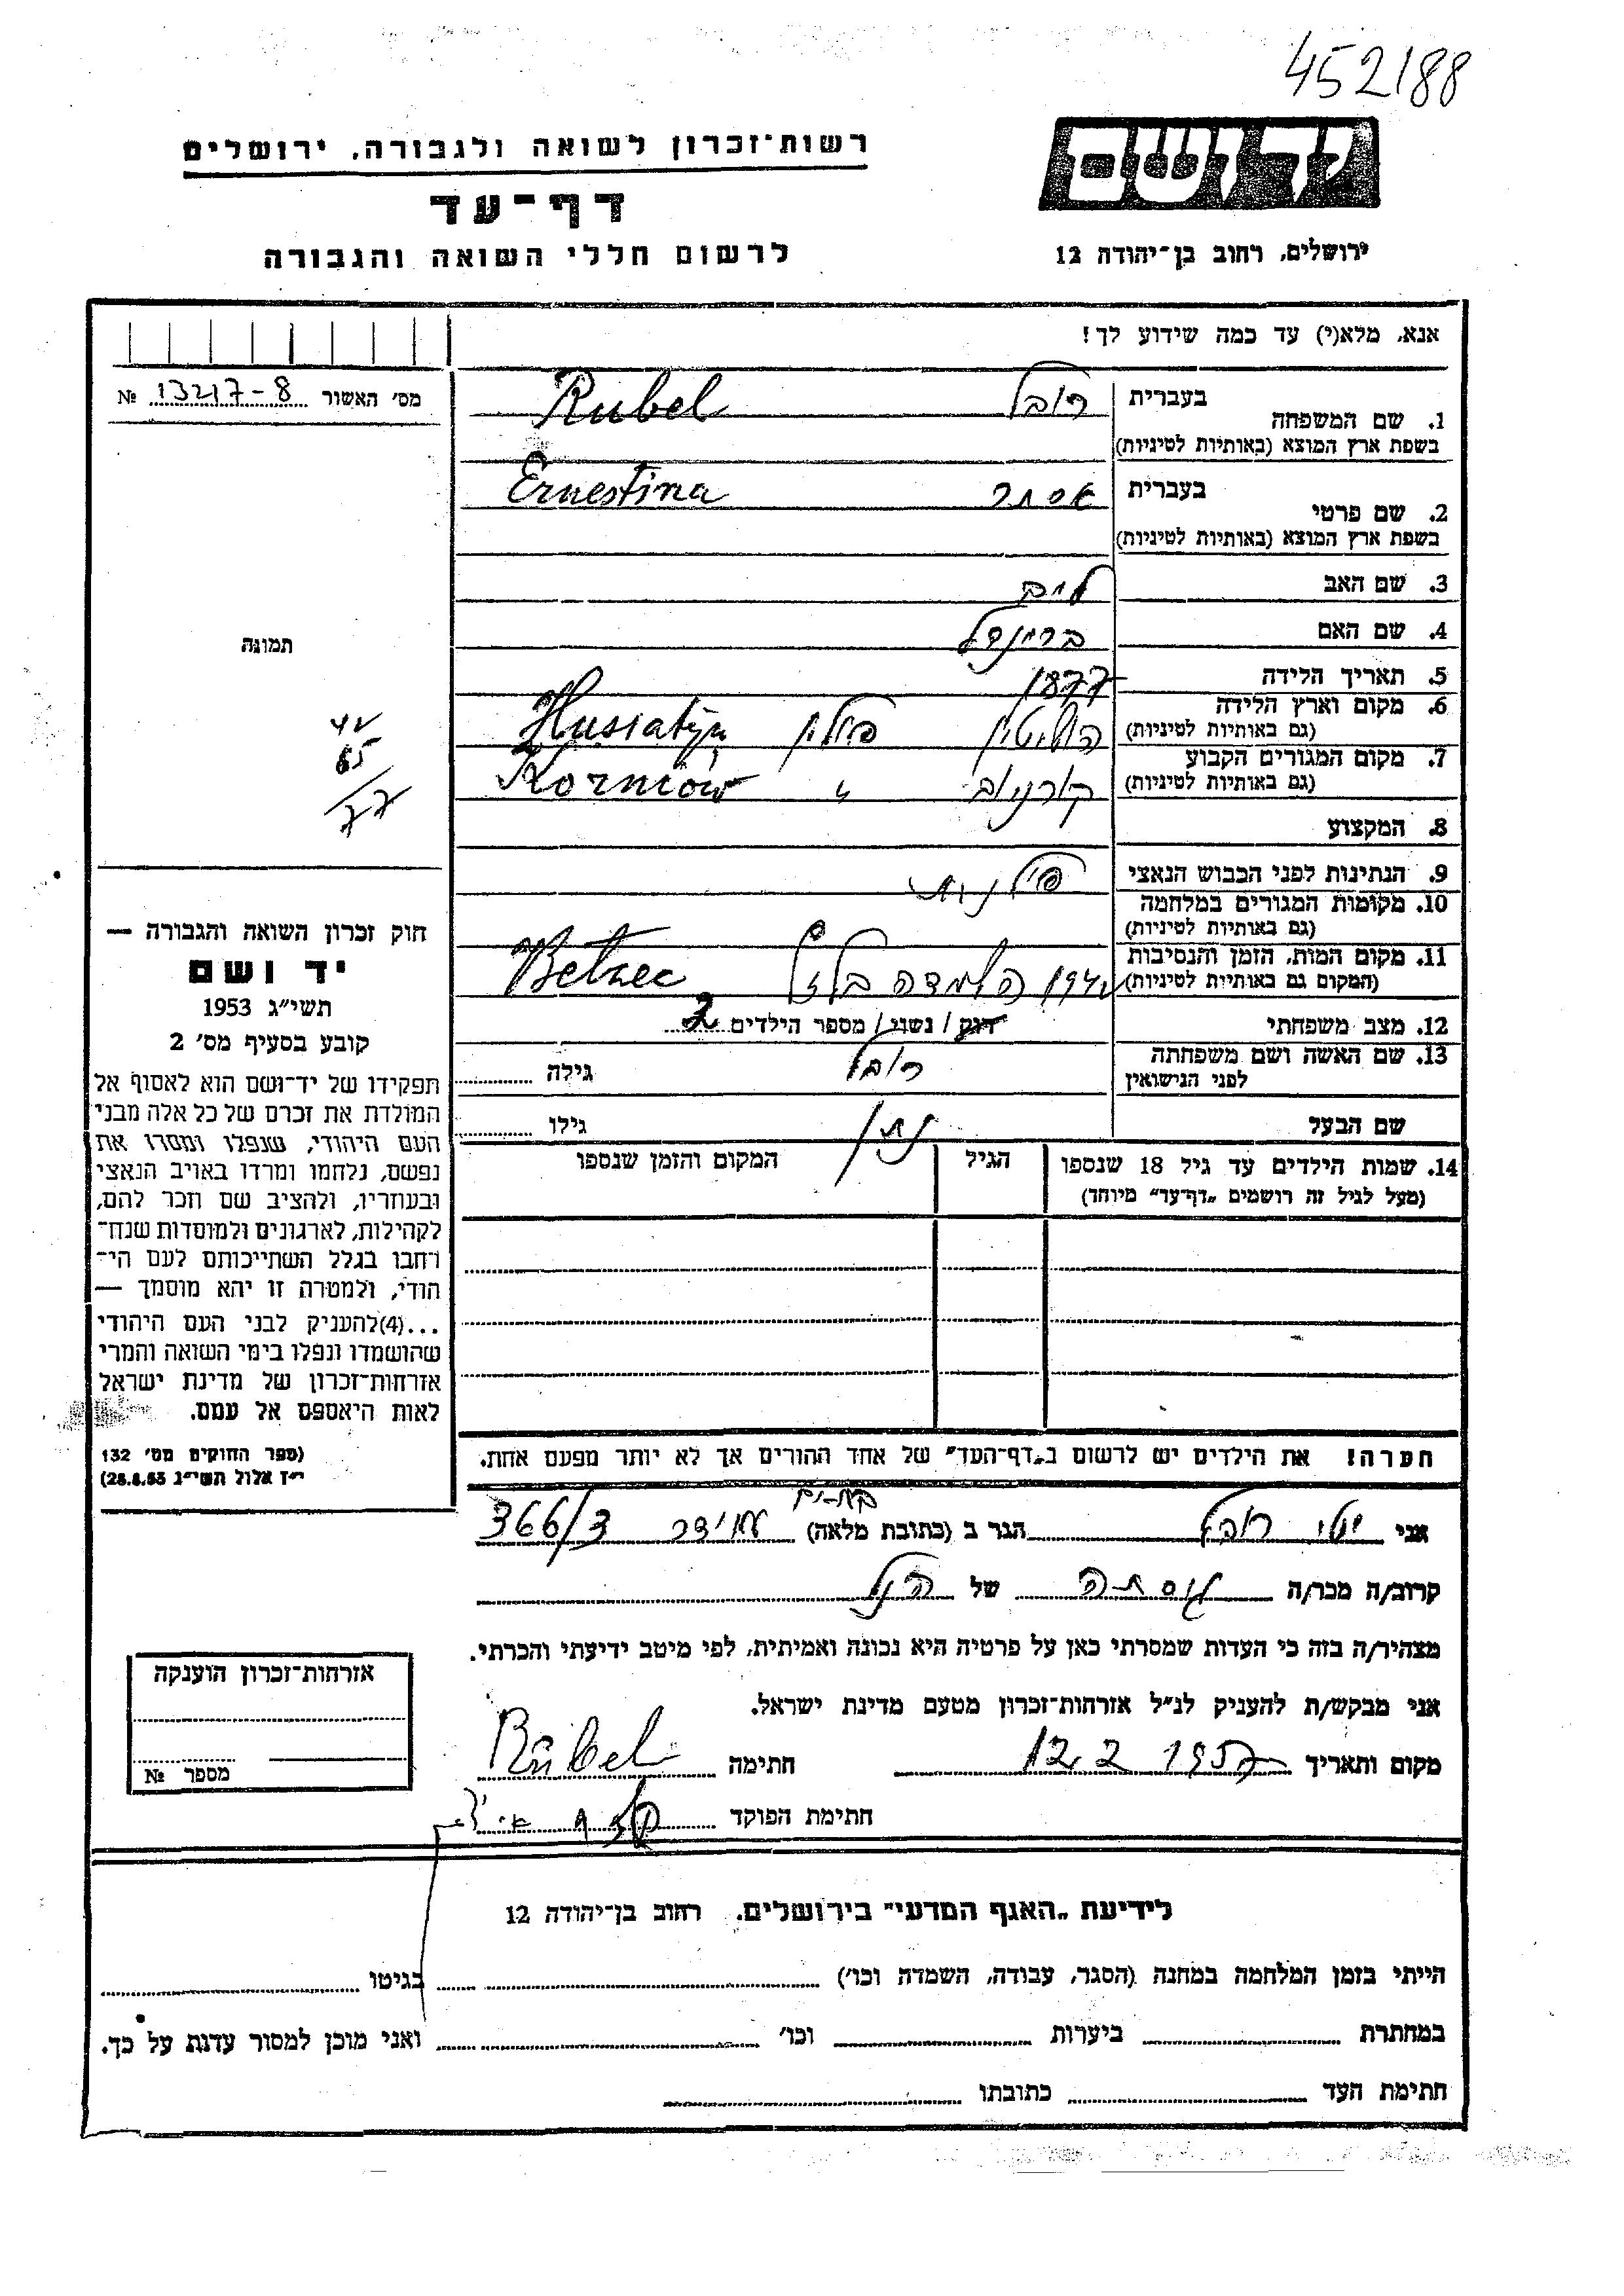 452188
רשות־זכרון לשואה ולגבורה, ירושלים
יד ושם
דף־עד
לרשום חללי השואה והגבורה
ירושלים, רחוב בן־יהודה 12
אנא, מלא(י) עד כמה שידוע לך!
מס' האשור 13217-8 №
בעברית רובל Rubel
1. שם המשפחה
בשפת ארץ המוצא (באותיות לטיניות)
בעברית אסתר Ernestina
2. שם פרטי
בשפת ארץ המוצא (באותיות לטיניות)
3. שם האב חיים
4. שם האם בריינדל
5. תאריך הלידה 1877
6. מקום וארץ הלידה הוסיטין פולין Husiatyn
(גם באותיות לטיניות)
7. מקום המגורים הקבוע קורניוב " Korniów
(גם באותיות לטיניות)
8. המקצוע
9. הנתינות לפני הכבוש הנאצי פולנית
10. מקומות המגורים במלחמה
(גם באותיות לטיניות)
11. מקום המות, הזמן והנסיבות השמדה בלזץ Betzec
(המקום גם באותיות לטיניות)
12. מצב משפחתי רוק / נשוי / מספר הילדים
13. שם האשה ושם משפחתה רובל גילה
לפני הנישואין
שם הבעל נתן גילו
14. שמות הילדים עד גיל 18 שנספו הגיל המקום והזמן שנספו
(מעל לגיל זה רושמים „דף־עד" מיוחד)
הערה! את הילדים יש לרשום ב„דף־העד" של אחד ההורים אך לא יותר מפעם אחת.
תמונה
42
65
77
חוק זכרון השואה והגבורה —
יד ושם
תשי״ג 1953
קובע בסעיף מס' 2
תפקידו של יד־ושם הוא לאסוף אל
המולדת את זכרם של כל אלה מבני
העם היהודי, שנפלו ומסרו את
נפשם, נלחמו ומרדו באויב הנאצי
ובעוזריו, ולהציב שם וזכר להם,
לקהילות, לארגונים ולמוסדות שנח־
רחבו בגלל השתייכותם לעם הי־
הודי, ולמטרה זו יהא מוסמך —
...(4)להעניק לבני העם היהודי
שהושמדו ונפלו בימי השואה והמרי
אזרחות־זכרון של מדינת ישראל
לאות היאספם אל עמם.
(ספר החוקים מס' 132
י״ז אלול תשי״ג 28.8.53)
אני יטי רובל הגר ב (כתובת מלאה) בת-ים עמידר 366/3
קרוב/ה מכר/ה גיסתה של הנ"ל
מצהיר/ה בזה כי העדות שמסרתי כאן על פרטיה היא נכונה ואמיתית, לפי מיטב ידיעתי והכרתי.
אני מבקש/ת להעניק לנ״ל אזרחות־זכרון מטעם מדינת ישראל.
מקום ותאריך 12.2 1957 חתימה Rübel
חתימת הפוקד
אזרחות־זכרון הוענקה
מספר №
לידיעת „האגף המדעי" בירושלים, רחוב בן־יהודה 12
הייתי בזמן המלחמה במחנה (הסגר, עבודה, השמדה וכו') בגיטו
במחתרת ביערות וכו' ואני מוכן למסור עדות על כך.
חתימת העד כתובתו